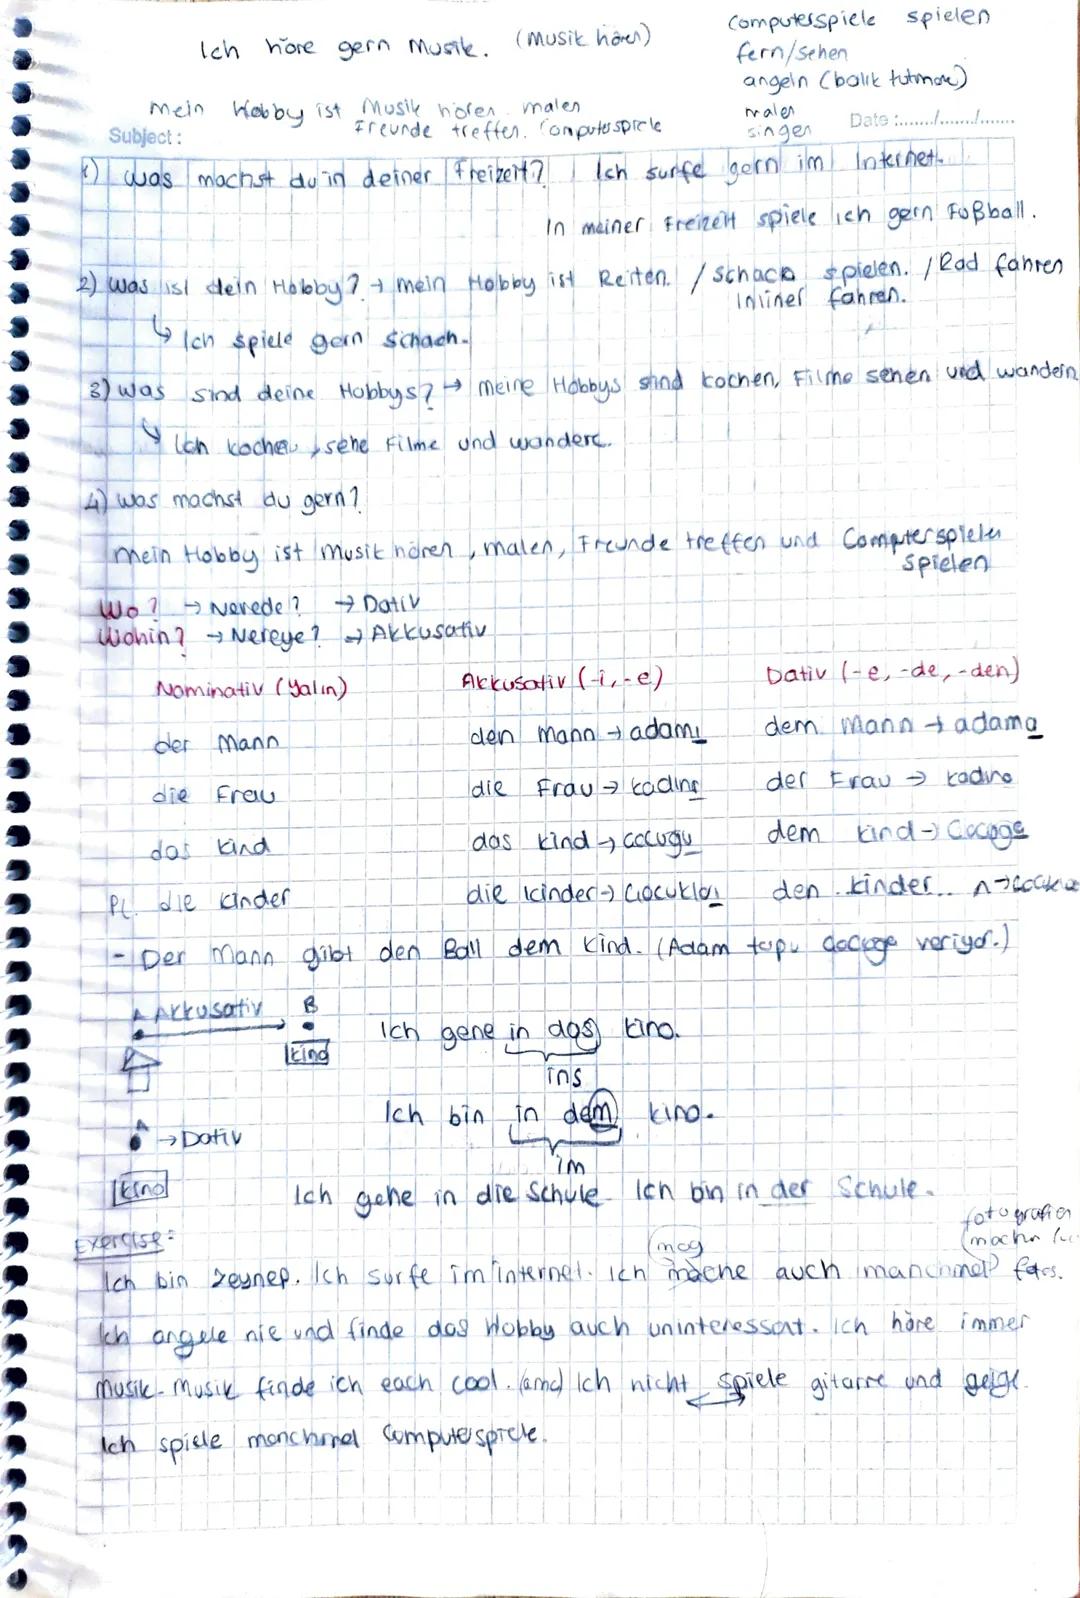 Ich höre gern Musik. (Musik hören)
Computersspiele spielen
fern/sehen
angeln (balık tutmak)
malen
singen
Mein Hobby ist Musik hören malen
Freunde treffen. Computerspiele
Subject :
Date :......../......../.......
1) was machst du in deiner Freizeit? Ich surfe gern im Internet.
In meiner Freizeit spiele ich gern Fußball.
2) Was ist dein Hobby? → mein Hobby ist Reiten. / schach spielen. / Rad fahren
Inliner fahren.
↳ Ich spiele gern schach.
3) Was sind deine Hobbys? → meine Hobbys sind kochen, Filme sehen und wandern
↳ Ich koche, sehe Filme und wandere.
4) was machst du gern?
Mein Hobby ist Musik hören, malen, Freunde treffen und Computerspielen
spielen
Wo? → Nerede? → Dativ
Wohin? → Nereye? → Akkusativ
Nominativ (Yalın) Akkusativ (-i, -e) Dativ (-e, -de, -den)
der Mann den Mann → adamı dem Mann → adama
die Frau die Frau → kadını der Frau → kadına
das Kind das Kind → çocuğu dem Kind → Çocoğa
PL. die Kinder die Kinder → Çocukları den Kinder.. n →
- Der Mann gibt den Ball dem Kind. (Adam topu çocuğa veriyor.)
A Akkusativ B
Kino
Ich gehe in das Kino.
ins
Ich bin in dem Kino.
im
A → Dativ
Kino
Ich gehe in die Schule Ich bin in der Schule.
Exercise:
fotografien
(machn
(mag
Ich bin Zeynep. Ich surfe im internet. Ich mache auch manchmal fotos.
Ich angele nie und finde das Hobby auch uninteressant. Ich höre immer
Musik. Musik finde ich each cool. (and) Ich nicht spiele gitarre und geige.
Ich spiele manchmal Computerspiele.